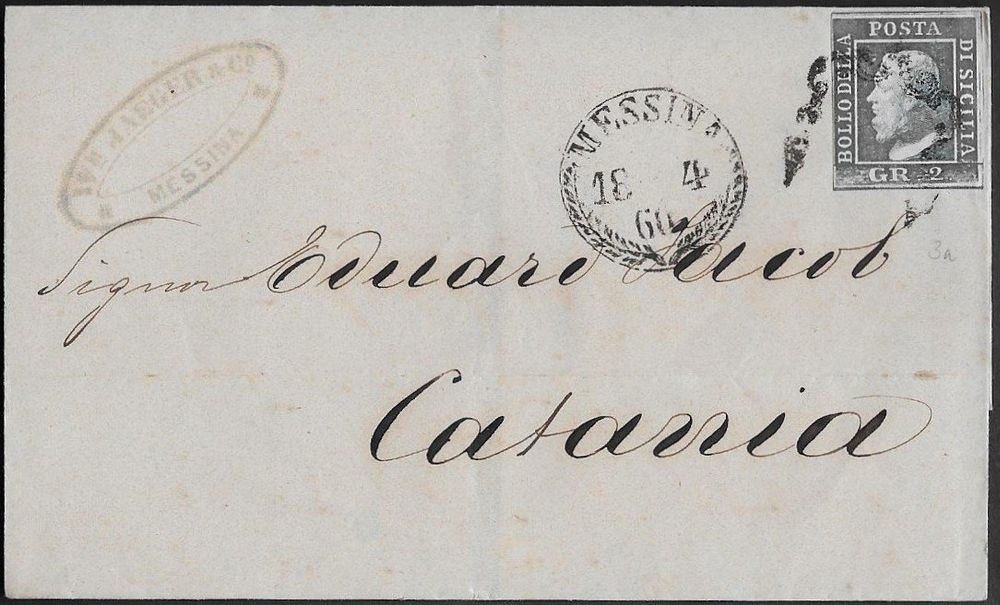 JAEGER & Cº
MESSINA
MESSINA
18 4
60
BOLLO DELLA
POSTA
DI SICILIA
GR 2
Signor Eduard Jacob
Catania
3a